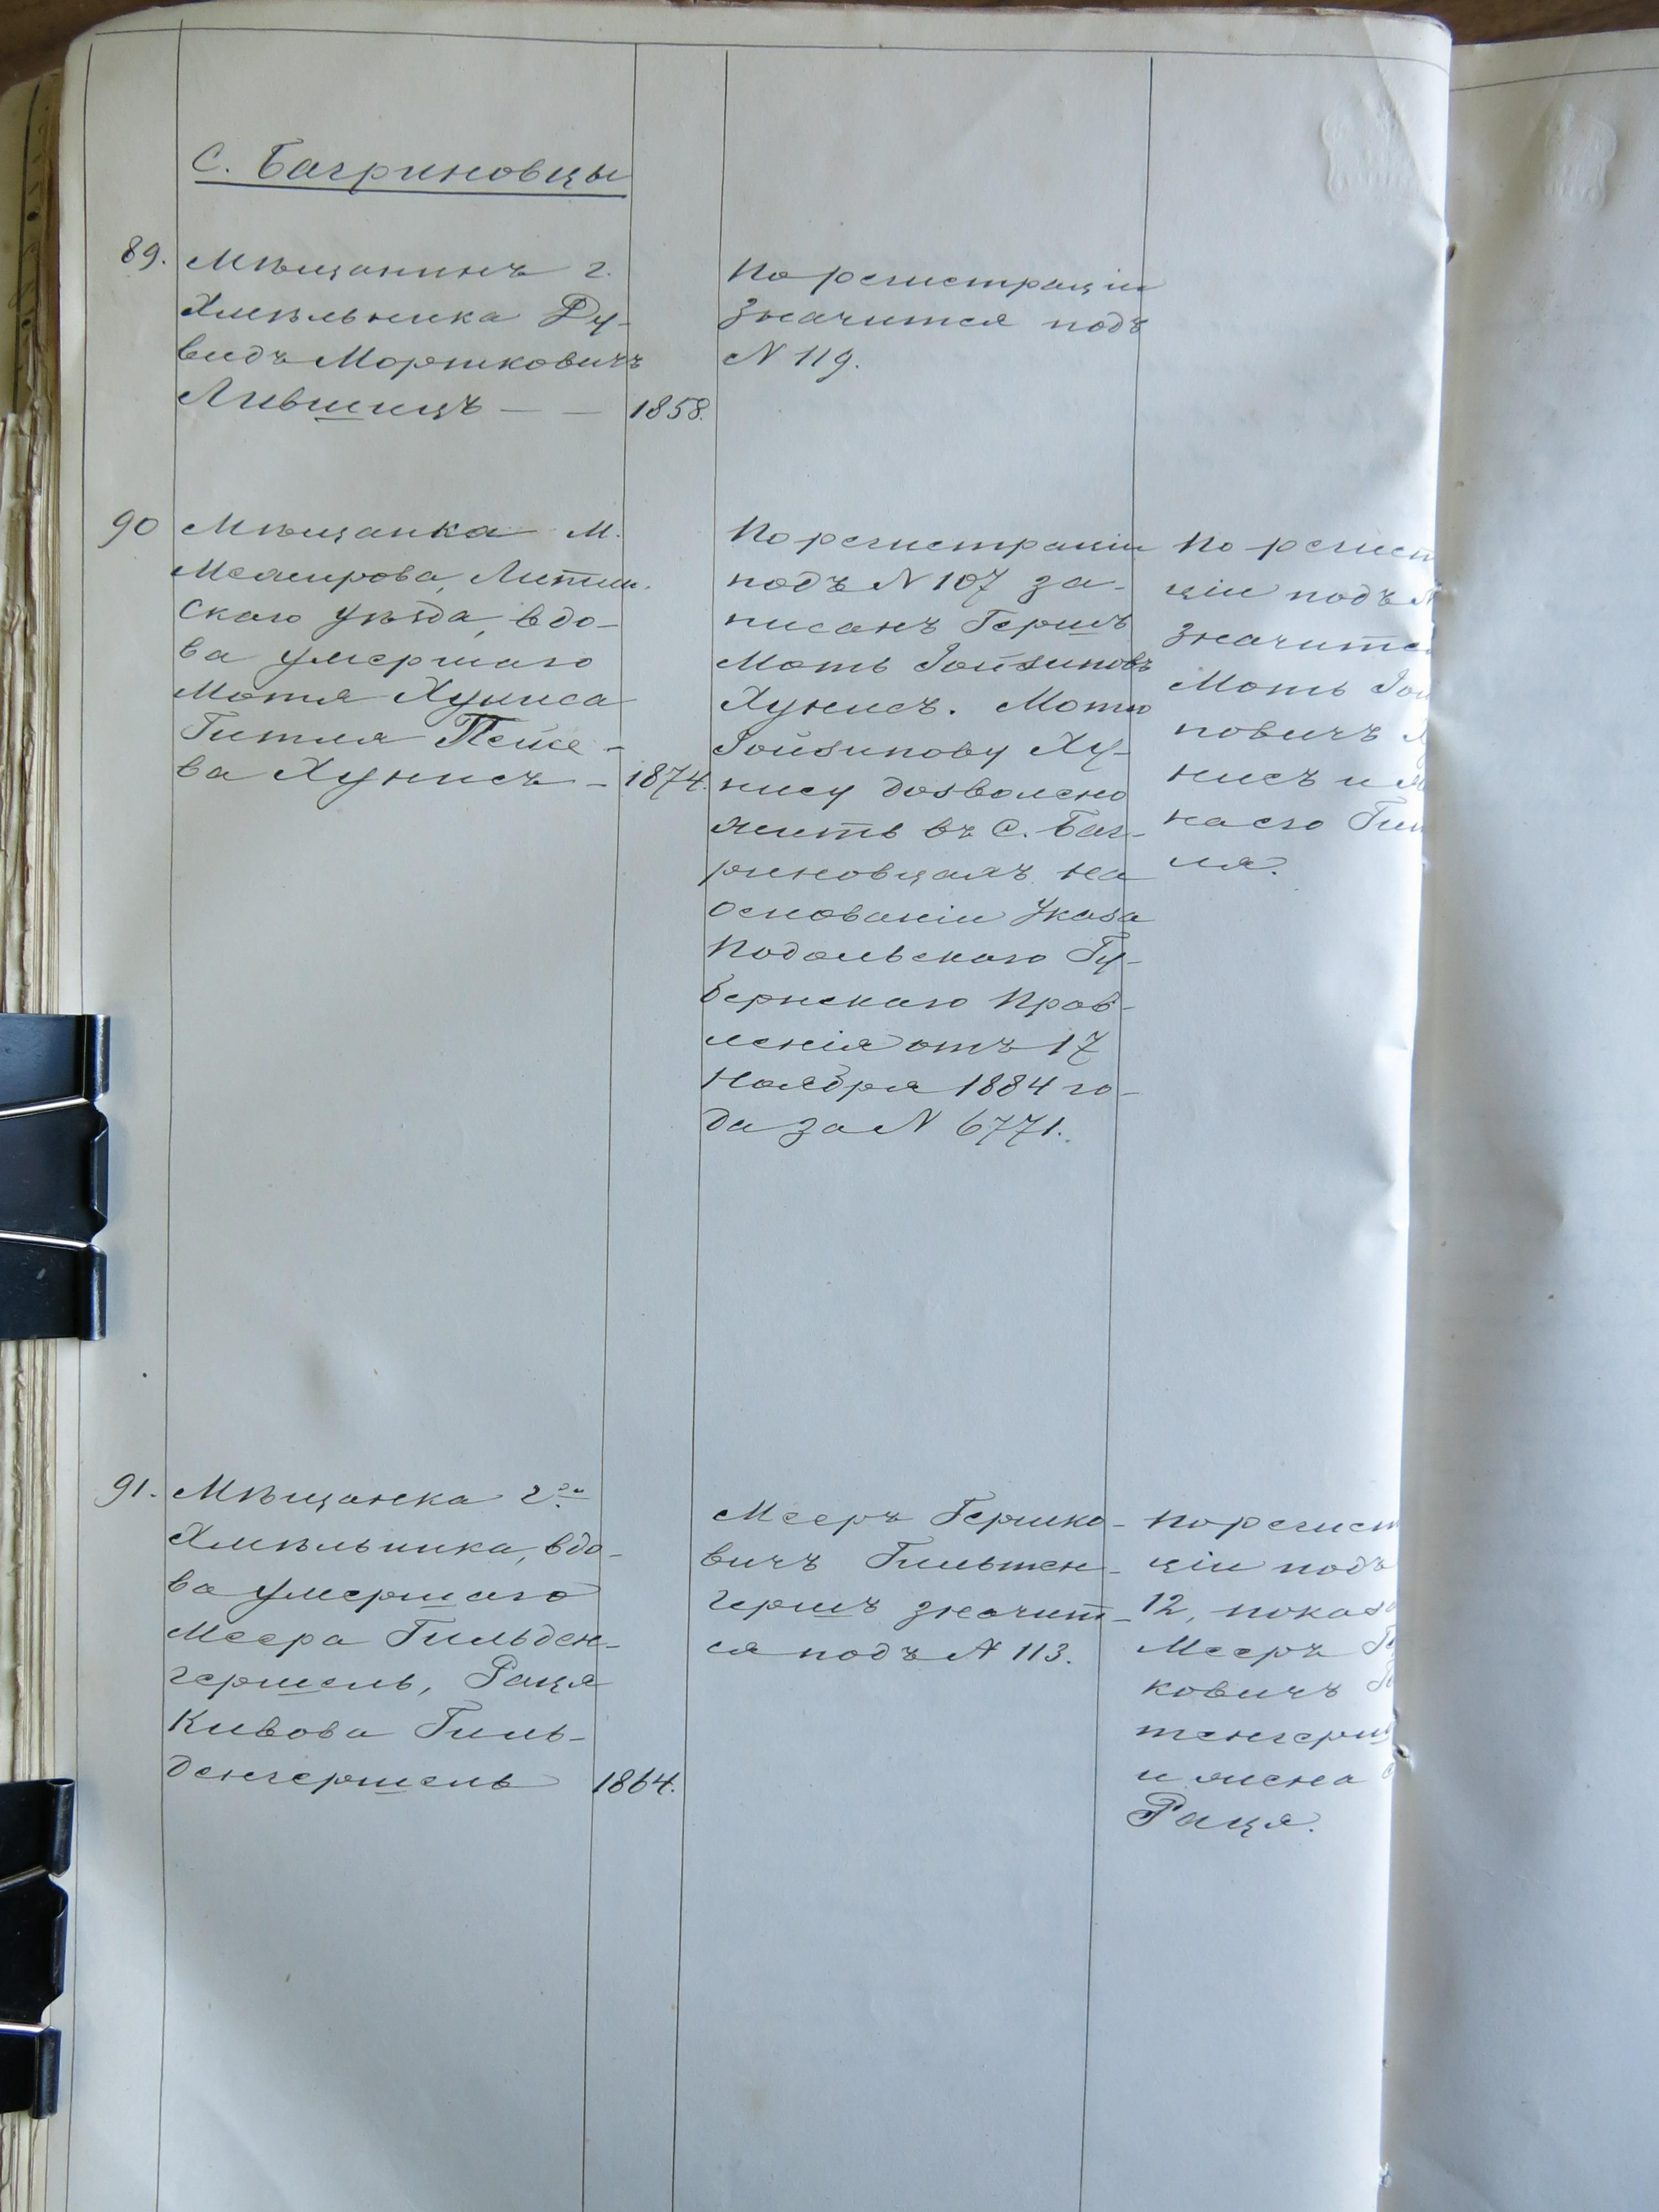 С. Багриновцы
89.
Мѣщанинъ г.
Хмѣльника Ру-
видъ Мошковичъ
Лившицъ — — 1858.
По регистраціи
значится подъ
N 119.
90
Мѣщанка м.
Межирова, Литин-
скаго уѣзда, вдо-
ва умершаго
Мотя Хуниса
Гитля Пейсе-
ва Хунисъ – 1874.
По регистраціи
подъ N 107 за-
писанъ Гершъ
Моть Іойзиповъ
Хунисъ. Мотю
Іойзипову Ху-
нису дозволено
жить въ С. Баг-
риновцахъ на
основаніи Указа
Подольскаго Гу-
бернскаго Прав-
ленія отъ 17
Ноября 1884 го-
да за N 6771.
По регист
ціи подъ N
значитс
Моть Іой
повичъ
нисъ и ж
на его Гит
ля.
91.
Мѣщанка г-да
Хмѣльника, вдо-
ва умершаго
Меера Гильден-
гершель, Рация
Кивова Гиль-
денгершель 1864.
Мееръ Гершко-
вичъ Гильтен-
гершъ значит-
ся подъ N 113.
По регист
ціи подъ
12, показа
Мееръ Ге
ковичъ Ги
тенгерш
и жена
Раця.